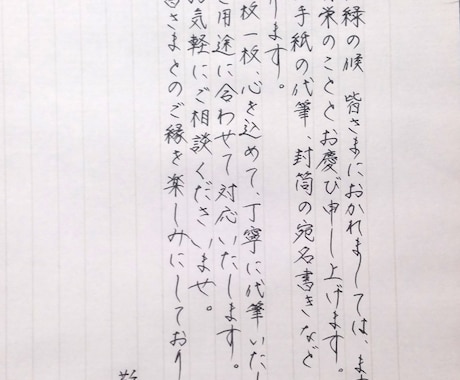 緑の候 皆さまにおかれましては、ます
栄のこととお慶び申し上げます。
手紙の代筆、封筒の宛名書きなど
ります。
板一板、心を込めて、丁寧に代筆いたし
ご用途に合わせて対応いたします。
お気軽にご相談くださいませ。
皆さまとのご縁を楽しみにしており